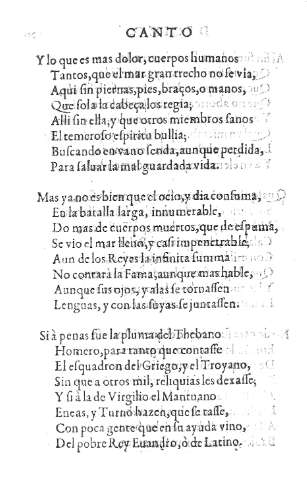 CANTO
Y lo que es mas dolor, cuerpos humanos
Tantos, que el mar gran trecho no se via,
Aqui sin piernas, pies, braços, o manos,
Que sola la cabeça los regia;
Alli sin ella, y que otros miembros sanos
El temeroso espiritu bullia;
Buscando en vano senda, aunque perdida,
Para saluar la mal guardada vida.
Mas ya no es bien que el ocio, y dia consuma,
En la batalla larga, innumerable,
Do mas de cuerpos muertos, que de espuma,
Se vio el mar lleno, y casi impenetrable,
Aun de los Reyes la infinita summa
No contará la Fama, aunque mas hable,
Aunque sus ojos, y alas se tornassen
Lenguas, y con las suyas se juntassen.
Si à penas fue la pluma del Thebano
Homero, para tanto que contasse
El esquadron del Griego, y el Troyano,
Sin que a otros mil, reliquias les dexasse;
Y si à la de Virgilio el Mantuano
Eneas, y Turno hazen, que se tasse,
Con poca gente que en su ayuda vino,
Del pobre Rey Euandro, ò de Latino.